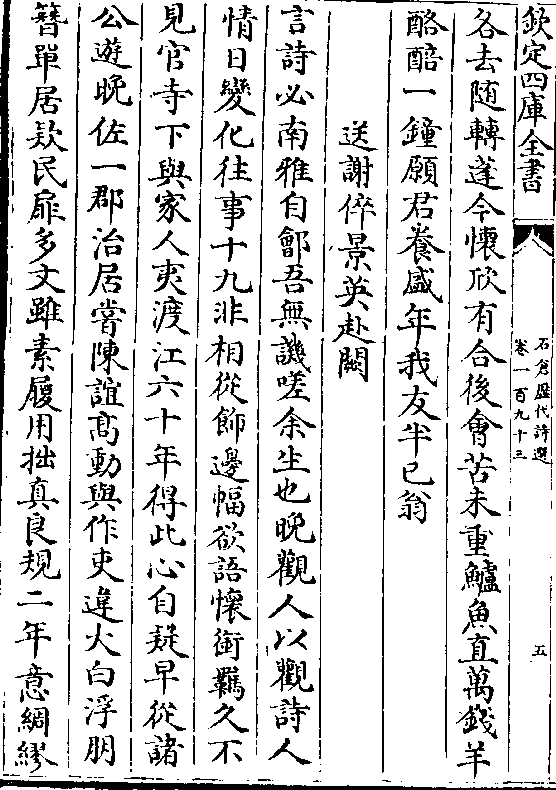 欽定四庫全書
石倉歷代詩選
卷一百九十三
五
各去随轉蓬今懷欣有合後㑹苦未重鱸魚直萬錢羊
酪醅一鐘願君養盛年我友半已翁
送謝倅景英赴闕
言詩必南雅自鄶吾無譏嗟余生也晚觀人以觀詩人
情日變化往事十九非相從飾邊幅欲語懷銜羈久不
見官寺下與家人夷渡江六十年得此心自疑早從諸
公遊晚佐一郡治居嘗陳誼髙動與作吏違大白浮朋
簪單居欵民扉多文雖素履用拙真良規二年意綢繆